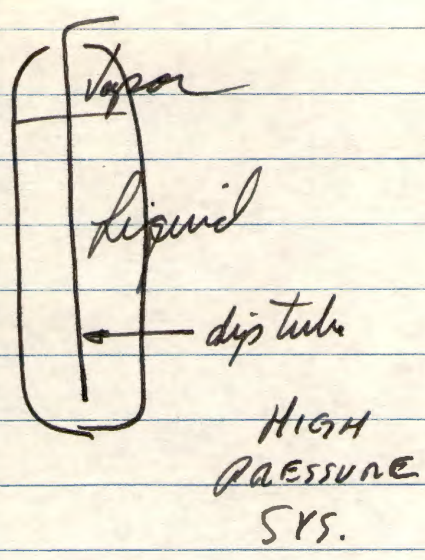 Vapor
Liquid
dip tube
HIGH
PRESSURE
SYS.